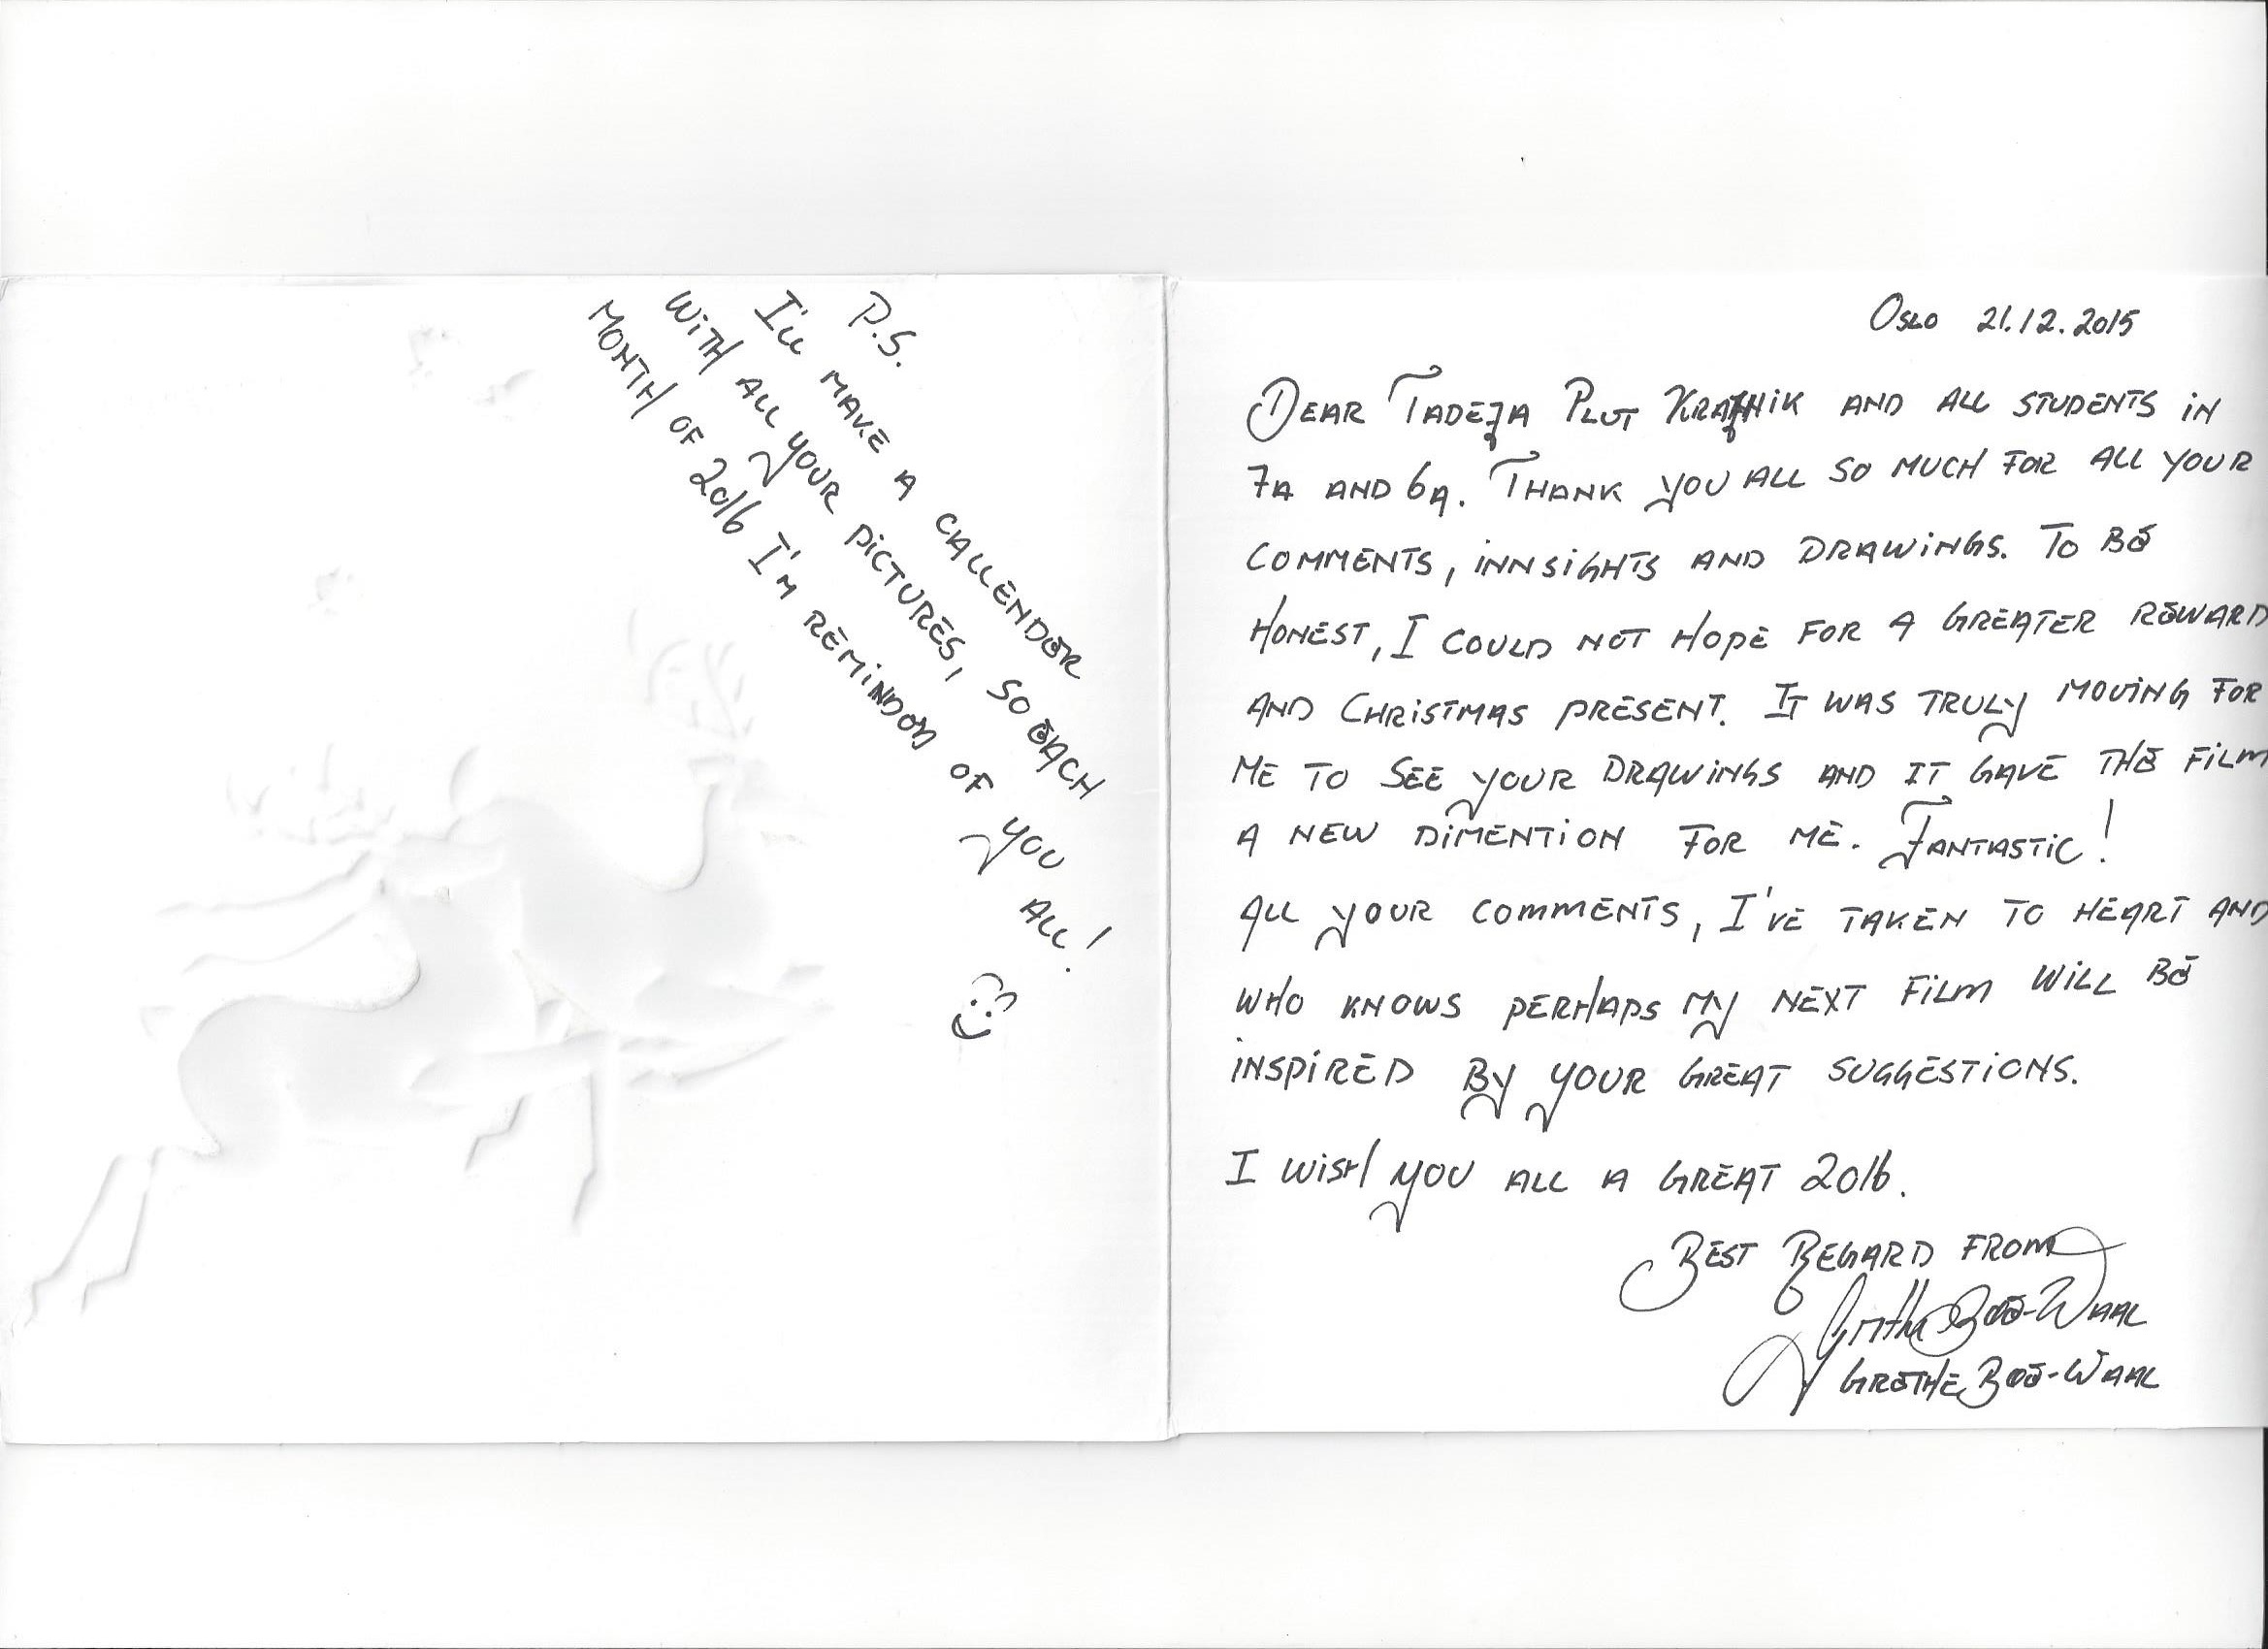 Oslo 21.12.2015
Dear Tadeja Plut Krajnik and all students in
7a and 6a. Thank you all so much for all your
comments, innsights and drawings. To be
honest, I could not hope for a greater reward
and Christmas present. It was truly moving for
me to see your drawings and it gave the film
a new dimention for me. Fantastic!
All your comments, I've taken to heart and
who knows perhaps my next film will be
inspired by your great suggestions.
I wish you all a great 2016.
Best Regard from
Grethe Bøe-Waal
Grethe Bøe-Waal
P.S.
I'll make a callender
with all your pictures, so each
month of 2016 I'm reminded of you all!